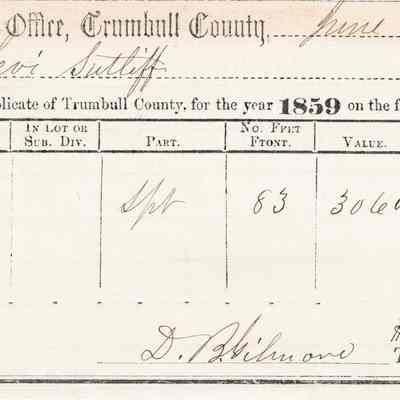 Office, Trumbull County, June
evi Sutliff
plicate of Trumbull County, for the year 1859 on the f
IN LOT OR SUB. DIV. PART. NO. FEET FRONT. VALUE.
Spt 83 306
D. B. Gilmore